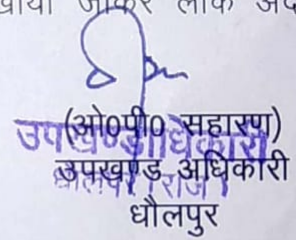 जाकर लोक
(ओ०पी० सहारण)
उपखण्डाधिकारी
उपखण्ड अधिकारी
धौलपुर